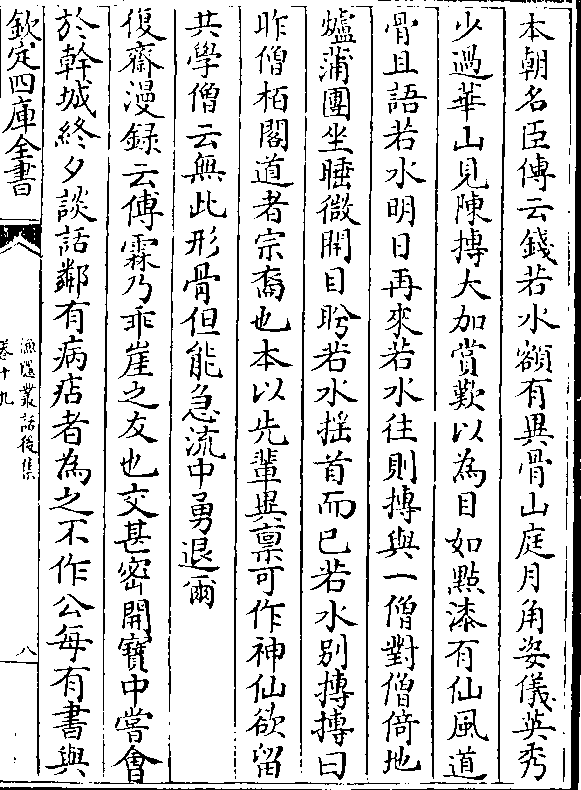 本朝名臣傳云錢若水額有異骨山庭月角姿儀英秀
少過華山見陳摶大加賞歎以為目如點漆有仙風道
骨且語若水明日再來若水往則摶與一僧對僧倚地
爐蒲團坐睡微開目眄若水揺首而已若水别摶摶曰
昨僧栢閣道者宗裔也本以先輩異禀可作神仙欲留
共學僧云無此形骨但能急流中勇退爾
復齋漫録云傅霖乃乖崖之友也交甚密開寶中嘗會
於幹城終夕談話鄰有病痁者為之不作公每有書與
欽定四庫全書
漁隱叢話後集
卷十九
八